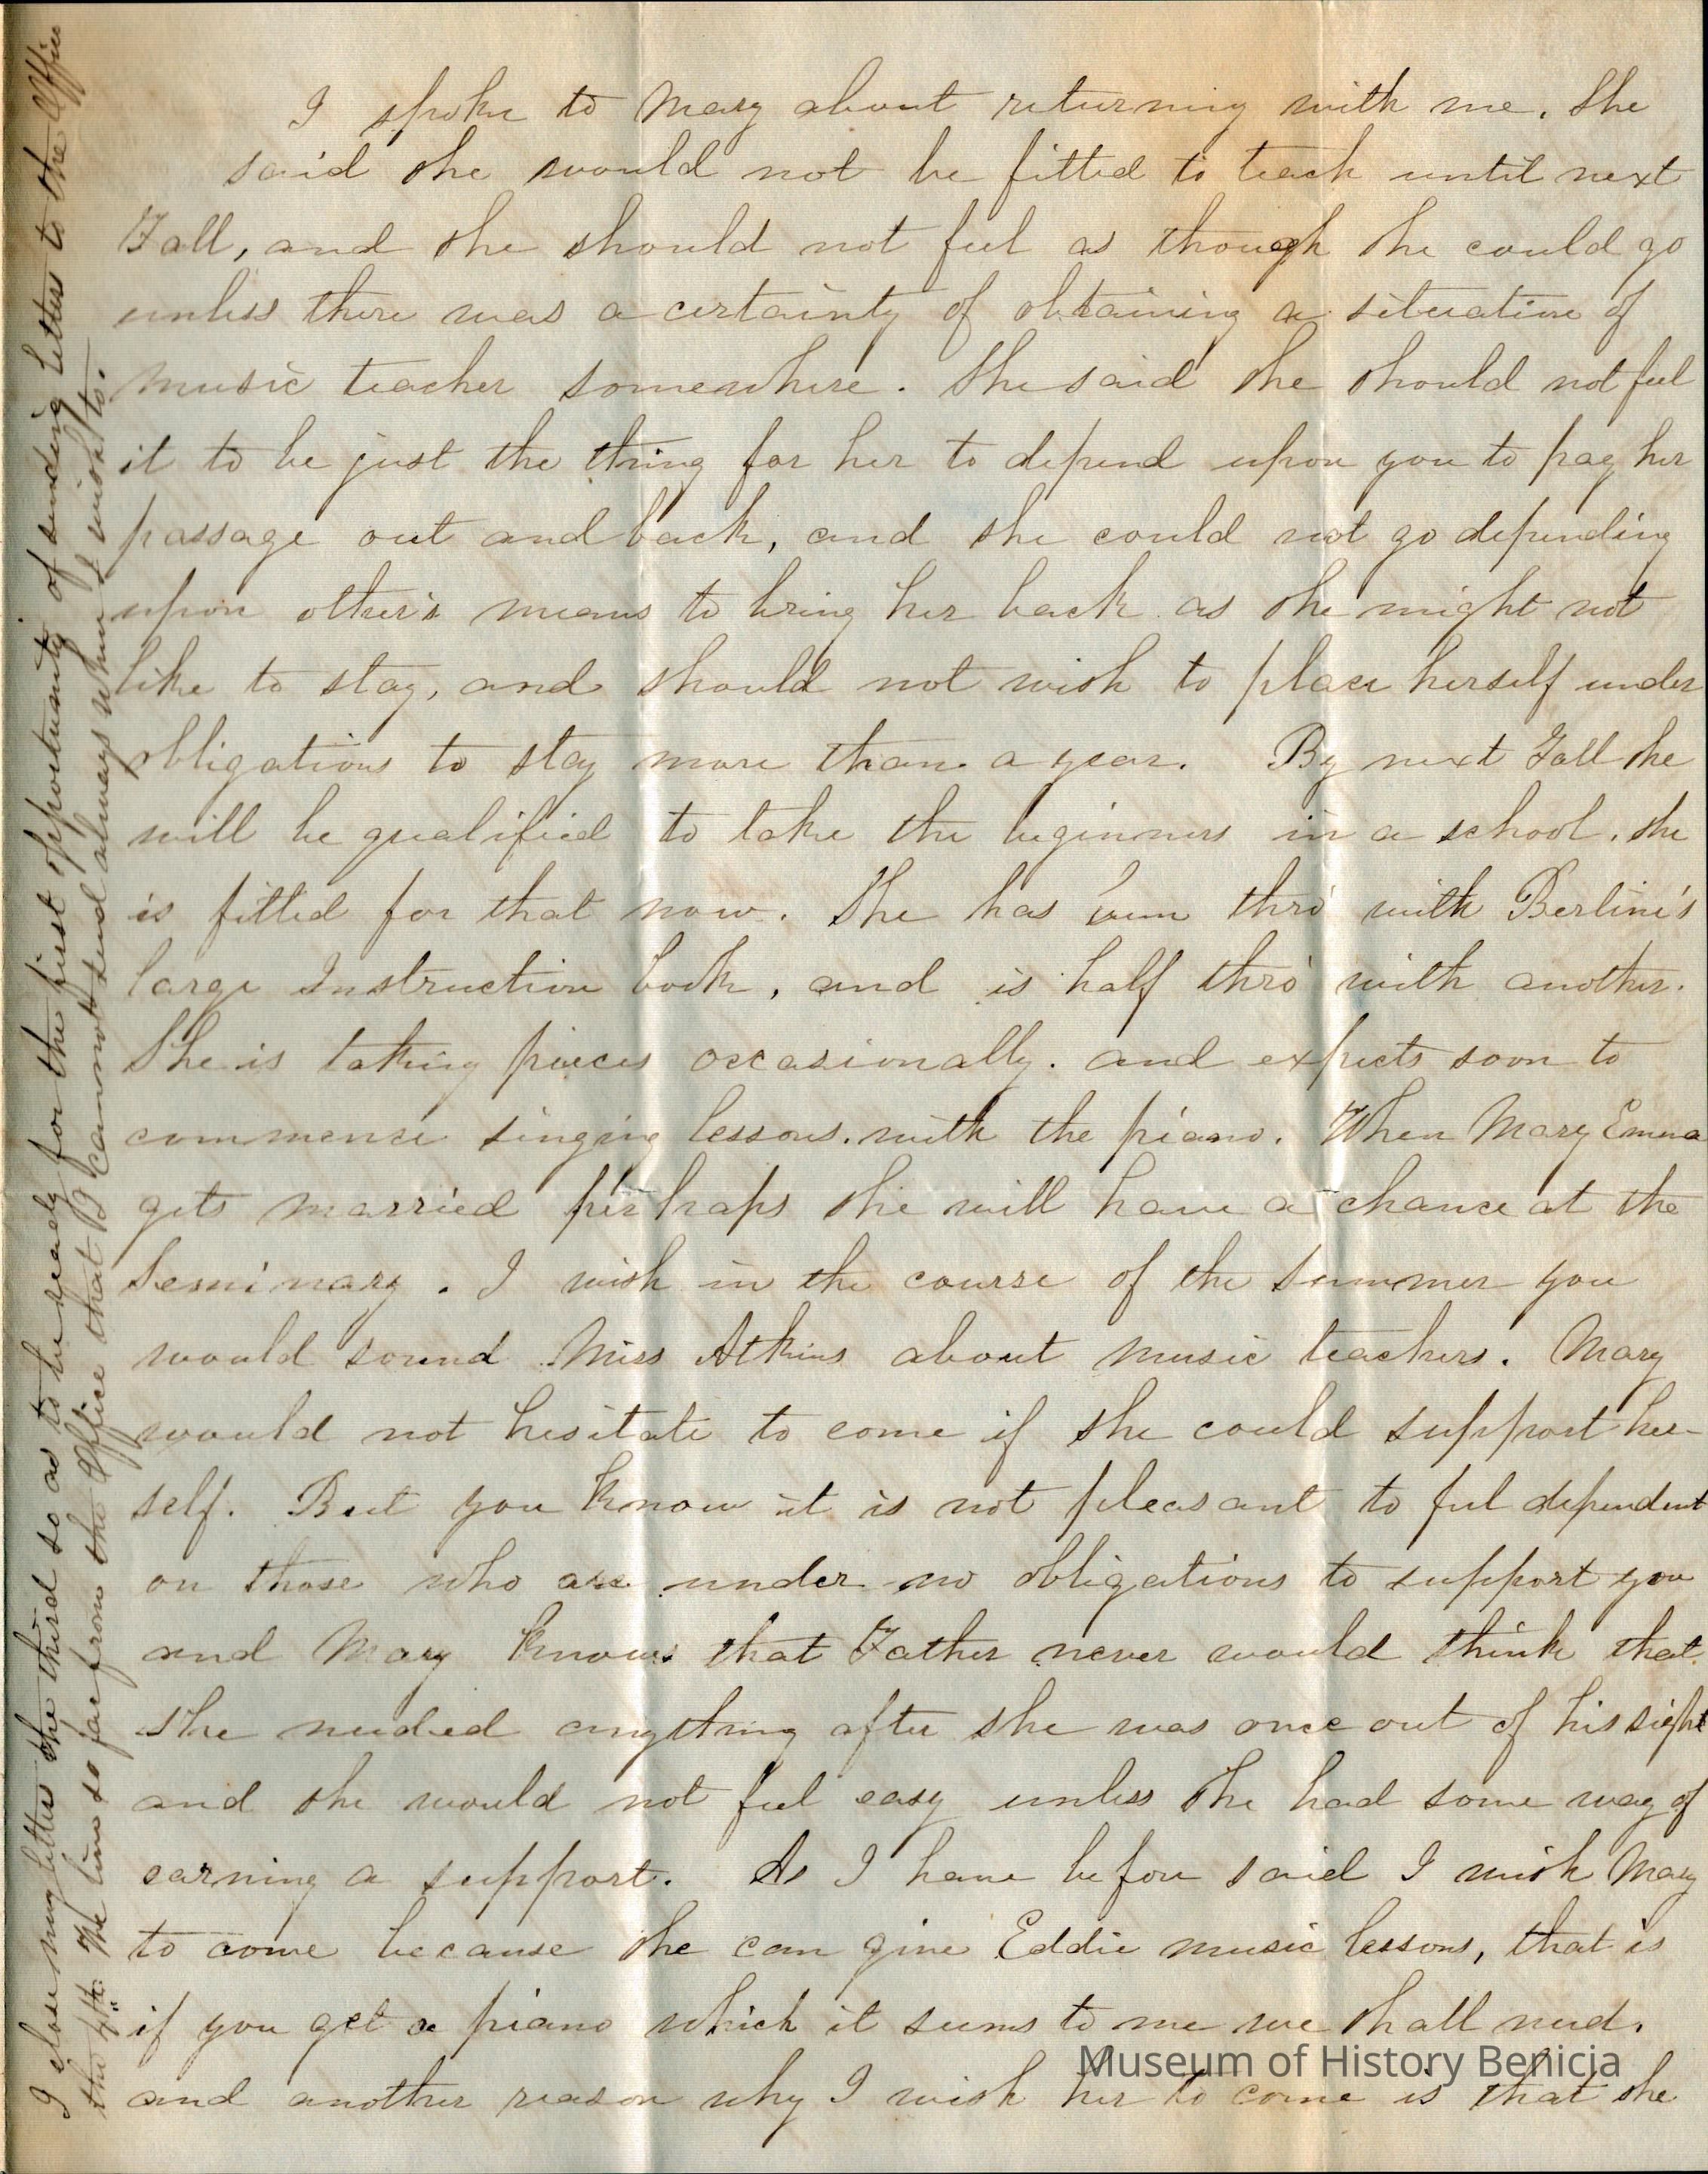 I spoke to Mary about returning with me. She
said she would not be fitted to teach until next
Fall, and she should not feel as though she could go
unless there was a certainty of obtaining a situation of
music teacher somewhere. She said she should not feel
it to be just the thing for her to depend upon you to pay her
passage out and back, and she could not go depending
upon other's means to bring her back as she might not
like to stay, and should not wish to place herself under
obligations to stay more than a year. By next Fall she
will be qualified to take the beginners in a school. she
is fitted for that now. She has been thro' with Bertini's
large Instruction book, and is half thro' with another.
She is taking pieces occasionally. and expects soon to
commence singing lessons. with the piano. When Mary Emma
gets married perhaps she will have a chance at the
Seminary. I wish in the course of the summer you
would sound Miss Atkins about music teachers. Mary
would not hesitate to come if she could support her-
self. But you know it is not pleasant to feel dependent
on those who are under no obligations to support you
and Mary knows that Father never would think that
she needed anything after she was once out of his sight
and she would not feel easy unless she had some way of
earning a support. As I have before said I wish Mary
to come because she can give Eddie music lessons, that is
if you get a piano which it seems to me we shall need.
and another reason why I wish her to come is that she
I close my letters the third so as to be ready for the first opportunity of sending letters to the Office
the 4th. We live so far from the Office that I cannot send always when I wish to.
Museum of History Benicia